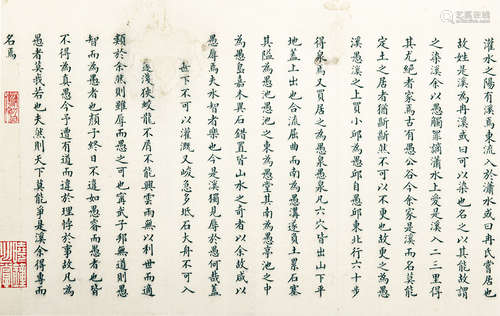 灌水之陽有溪焉東流入於瀟水或曰冉氏嘗居也
故姓是溪為冉溪或曰可以染也名之以其能故謂
之染溪余以愚觸罪謫瀟水上愛是溪入二三里得
其尤絕者家焉古有愚公谷今余家是溪而名莫能
定土之居者猶齗齗然不可以不更也故更之為愚
溪愚溪之上買小邱為愚邱自愚邱東北行六十步
得泉焉又買居之為愚泉愚泉凡六穴皆出山下平
地蓋上出也合流屈曲而南為愚溝遂負土累石塞
其隘為愚池愚池之東為愚堂其南為愚亭池之中
為愚島嘉木異石錯置皆山水之奇者以余故咸以
愚辱焉夫水智者樂也今是溪獨見辱於愚何哉蓋
甚下不可以灌溉又峻急多坻石大舟不可入
邃淺狹蛟龍不屑不能興雲雨無以利世而適
類於余然則雖辱而愚之可也甯武子邦無道則愚
智而為愚者也顏子終日不違如愚睿而愚者也皆
不得為真愚今予遭有道而違於理悖於事故凡為
愚者莫我若也夫然則天下莫能爭是溪余得專而
名焉